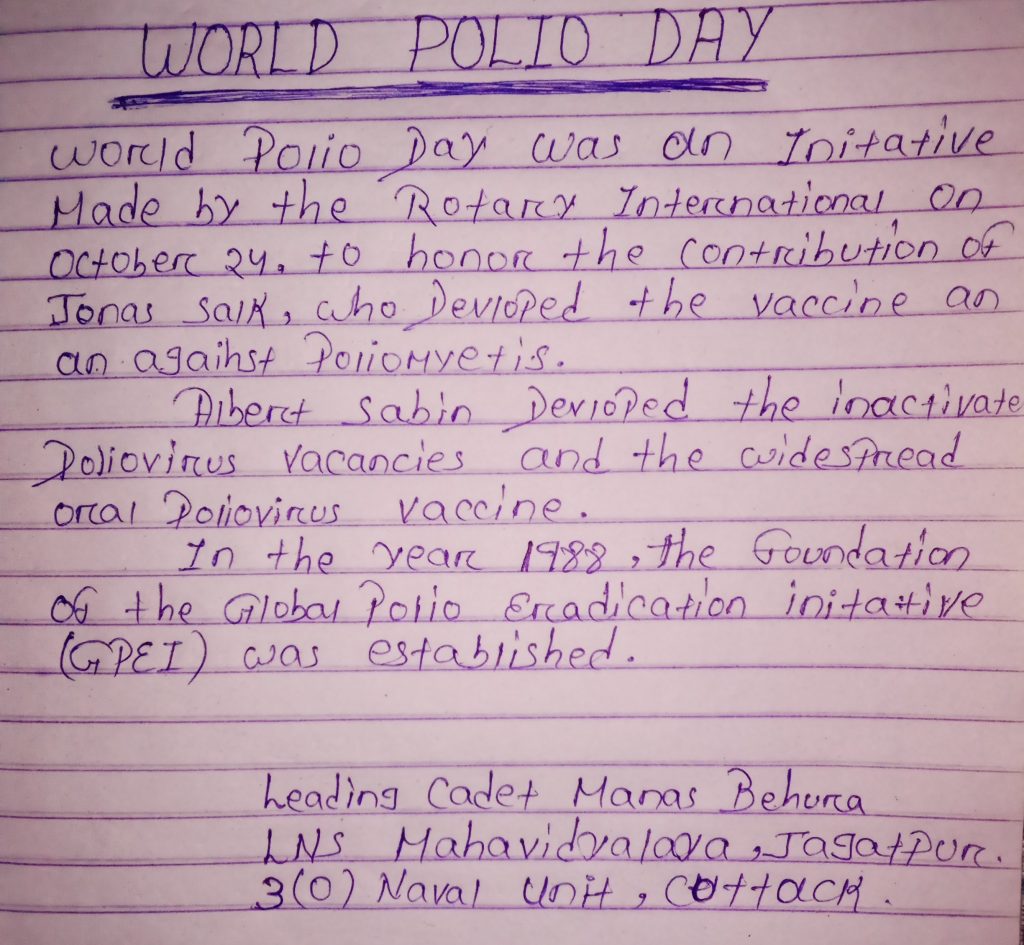 WORLD POLIO DAY
World Polio Day was an Initative
Made by the Rotary International on
October 24. to honor the contribution of
Jonas Salk, who Devloped the vaccine an
an against Poliomyetis.
Albert Sabin Devloped the inactivate
Poliovirus vacancies and the widespread
oral Poliovirus vaccine.
In the year 1988, the foundation
of the Global Polio Eradication initative
(GPEI) was established.
Leading Cadet Manas Behura
LNS Mahavidyalaya, Jagatpur.
3(O) Naval Unit, Cuttack.